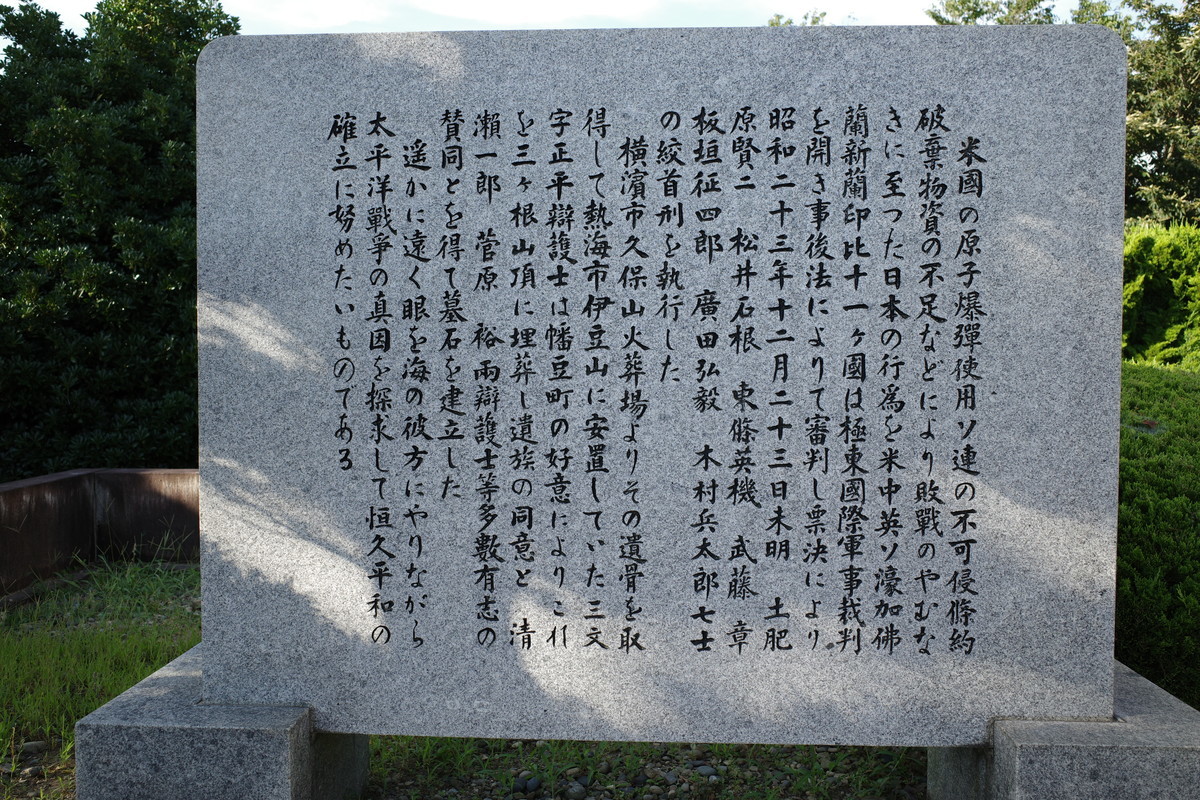 米國の原子爆彈使用ソ連の不可侵條約
破棄物資の不足などにより敗戰のやむな
きに至つた日本の行爲を米中英ソ濠加佛
蘭新蘭印比十一ヶ國は極東國際軍事裁判
を開き事後法によりて審判し票決により
昭和二十三年十二月二十三日未明 土肥
原賢二 松井石根 東條英機 武藤 章
板垣征四郎 廣田弘毅 木村兵太郎七士
の絞首刑を執行した
横濱市久保山火葬場よりその遺骨を取
得して熱海市伊豆山に安置していた三文
字正平辯護士は幡豆町の好意によりこれ
を三ヶ根山頂に埋葬し遺族の同意と 清
瀬一郎 菅原 裕両辯護士等多數有志の
賛同とを得て墓石を建立した
遥かに遠く眼を海の彼方にやりながら
太平洋戰爭の真因を探求して恒久平和の
確立に努めたいものである